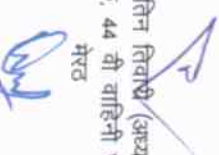 तिन तिवारी (अध्य
44 वी वाहिनी
मेरठ